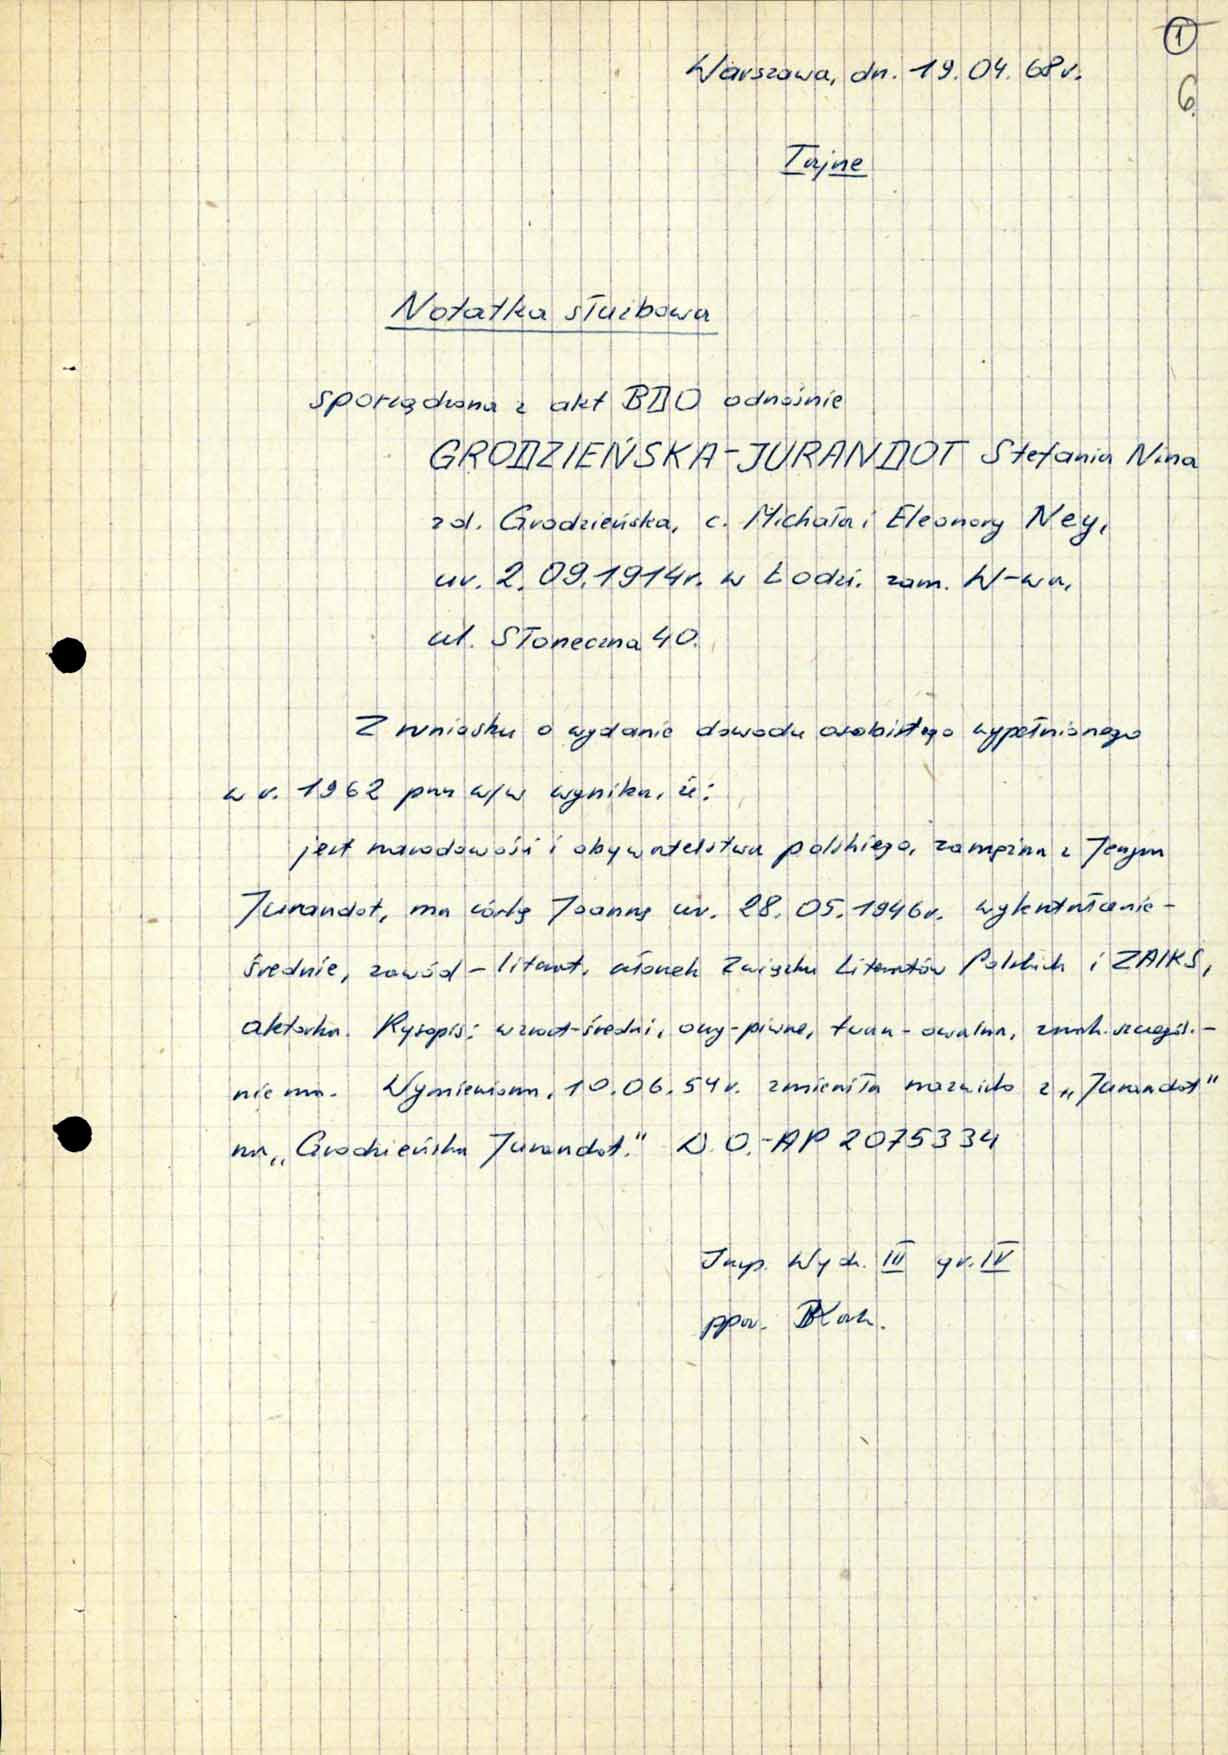 1
Warszawa, dn. 19.04.68r.
6
Tajne
Notatka służbowa
sporządzona z akt BDO odnośnie
GRODZIEŃSKA-JURANDOT Stefania Nina
zd. Grodzieńska, c. Michała i Eleonory Ney,
ur. 2.09.1914r. w Łodzi. zam. W-wa,
ul. Słoneczna 40.
Z wniosku o wydanie dowodu osobistego wypełnionego
w r. 1962 przez w/w wynika, że:
jest narodowości i obywatelstwa polskiego, zamężna z Jerzym
Jurandot, ma córkę Joannę ur. 28.05.1946r. wykształcenie -
średnie, zawód - literat, członek Związku Literatów Polskich i ZAIKS,
aktorka. Rysopis: wzrost-średni, oczy-piwne, twarz-owalna, znak. szczegól. -
nie ma. Wymieniona, 10.06.54r. zmieniła nazwisko z „Jurandot"
na „Grodzieńska Jurandot." D.O.-AP 2075334
Insp. Wydz. III gr. IV
ppor.